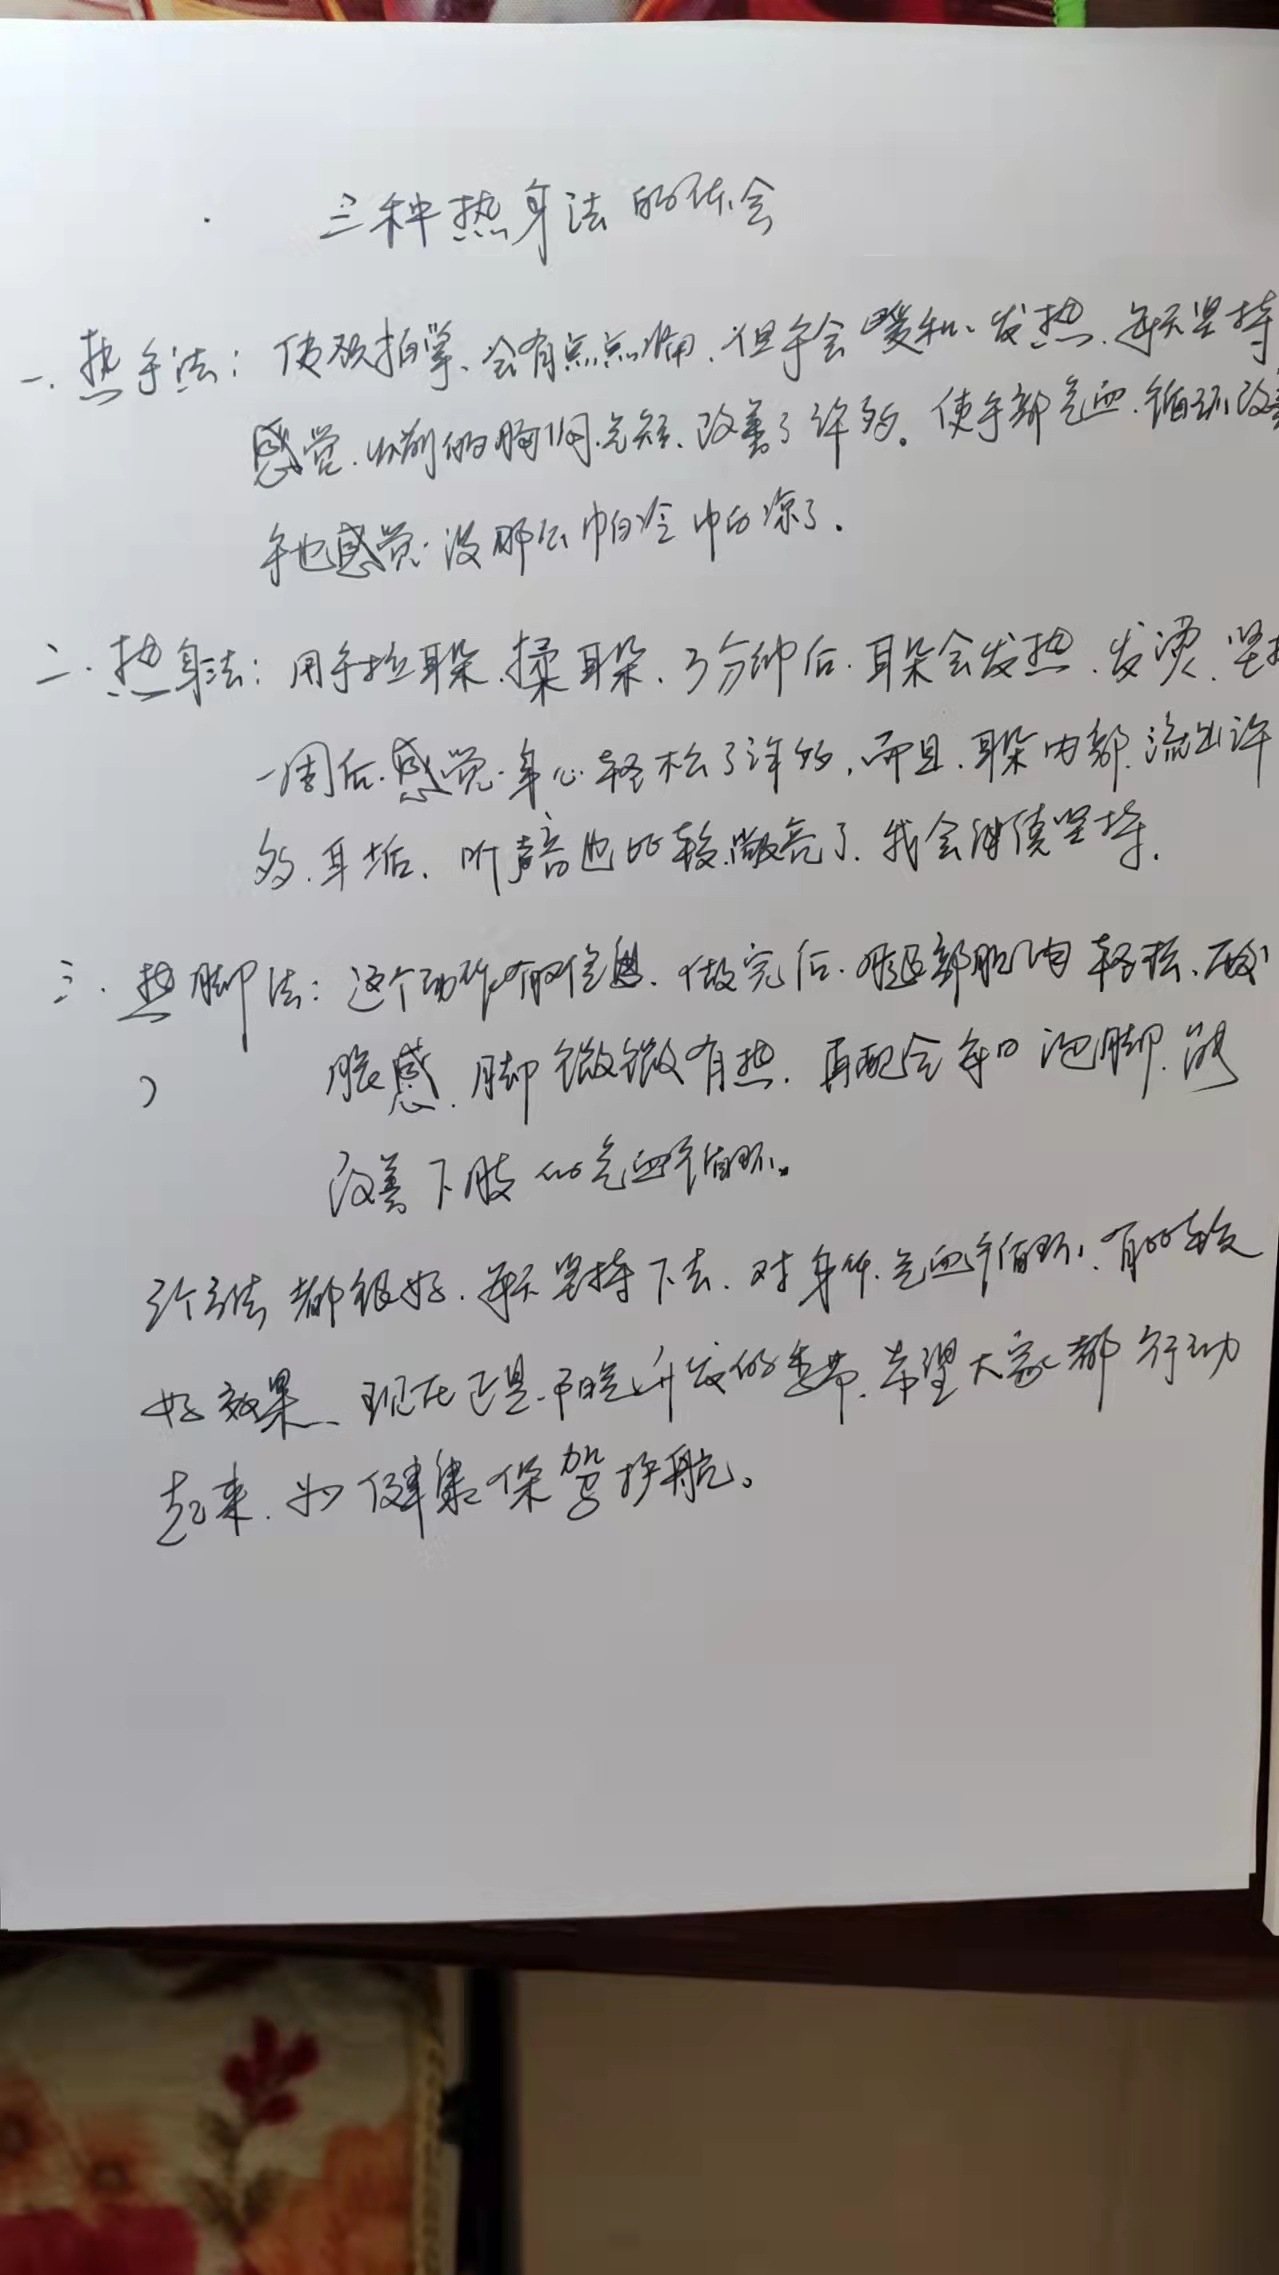 三种热身法的体会
一.热手法：使劲拍掌、会有点点痛.但手会暖和、发热.每天坚持
感觉.以前的胸闷.气短.改善了许多。使手部气血.循环改善
手也感觉.没那么怕冷怕凉了.
二.热身法：用手拉耳朵.揉耳朵.3分钟后.耳朵会发热.发烫.坚持
一周后.感觉.身心轻松了许多,而且.耳朵内部.流出许
多.耳垢.听声音也比较敞亮了.我会继续坚持.
三.热脚法：这个动作.做完后.腿部肌肉轻松、酸
胀感.脚微微有热.再配合每日泡脚.
改善下肢的气血循环。
3个方法都很好.每天坚持下去.对身体.气血循环.有比较
好效果、现在正是.阳气升发的季节.希望大家都行动
起来.为健康保驾护航。